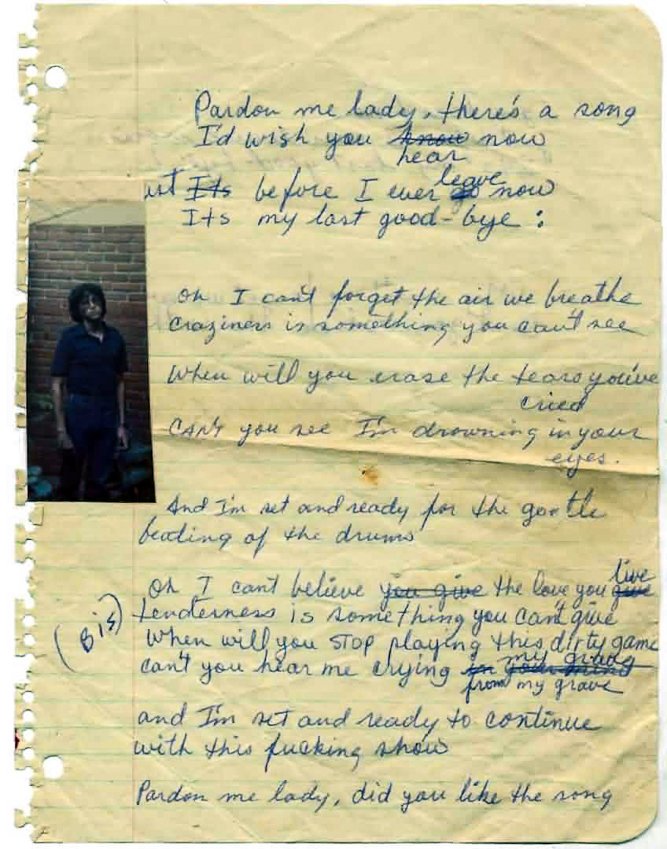 Pardon me lady, there's a song
I'd wish you know now
hear
ust Its before I ever go leave now
Its my last good-bye :
Oh I can't forget the air we breathe
Craziness is something you can't see
When will you erase the tears you've
cried
CAN'T you see I'm drowning in your
eyes.
And I'm set and ready for the gentle
beating of the drums
Oh I can't believe you give the love you give live
(Bis)
tenderness is something you can't give
When will you STOP playing this dirty game
can't you hear me crying in your mind my grave
from my grave
and I'm set and ready to continue
with this fucking show
Pardon me lady, did you like the song